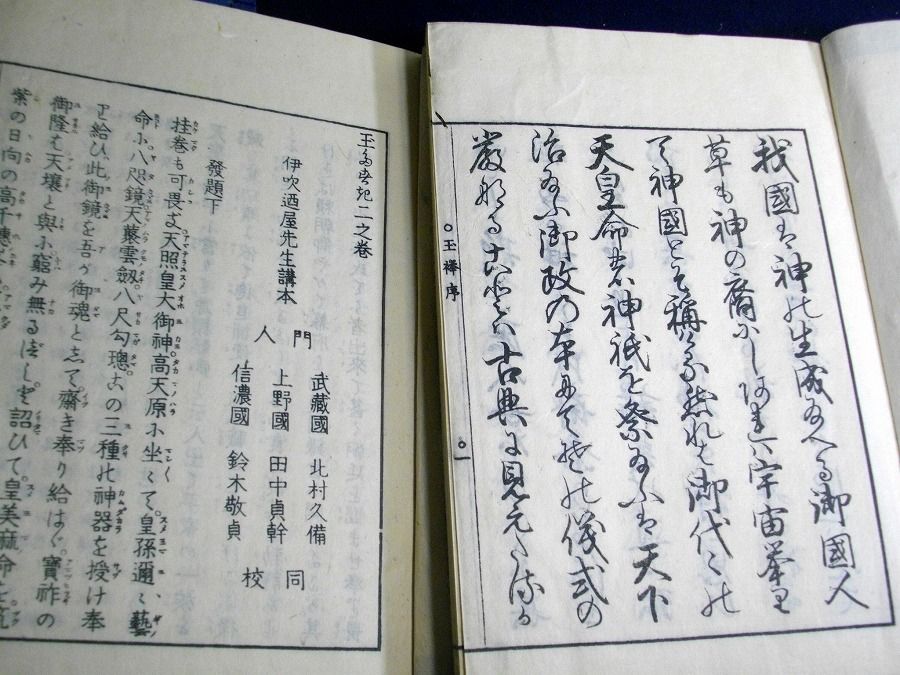 我國は神の生成給へる御國人
草も神の裔にしあれは宇宙挙り
て神國とそ稱ける然れは御代〻の
天皇命者神祇を祭給ふは天下
治給ふ御政の本にて其の儀式の
嚴なることは古典に見えたるか
○玉襷序
○一
玉多須幾二之卷
伊吹廼屋先生講本
門人
武藏國 北村久備
上野國 田中貞幹
信濃國 鈴木敬貞
同校
發題下
挂巻も可畏き天照皇大御神高天原に坐〻て皇孫邇〻藝
命に八咫鏡天叢雲劔八尺勾璁古の三種の神器を授け奉
り給ひ此御鏡を吾が御魂として齋き奉り給はゞ寶祚の
御隆は天壤と與に窮み無るべしと詔ひて皇美麻命を筑
紫の日向の高千穗